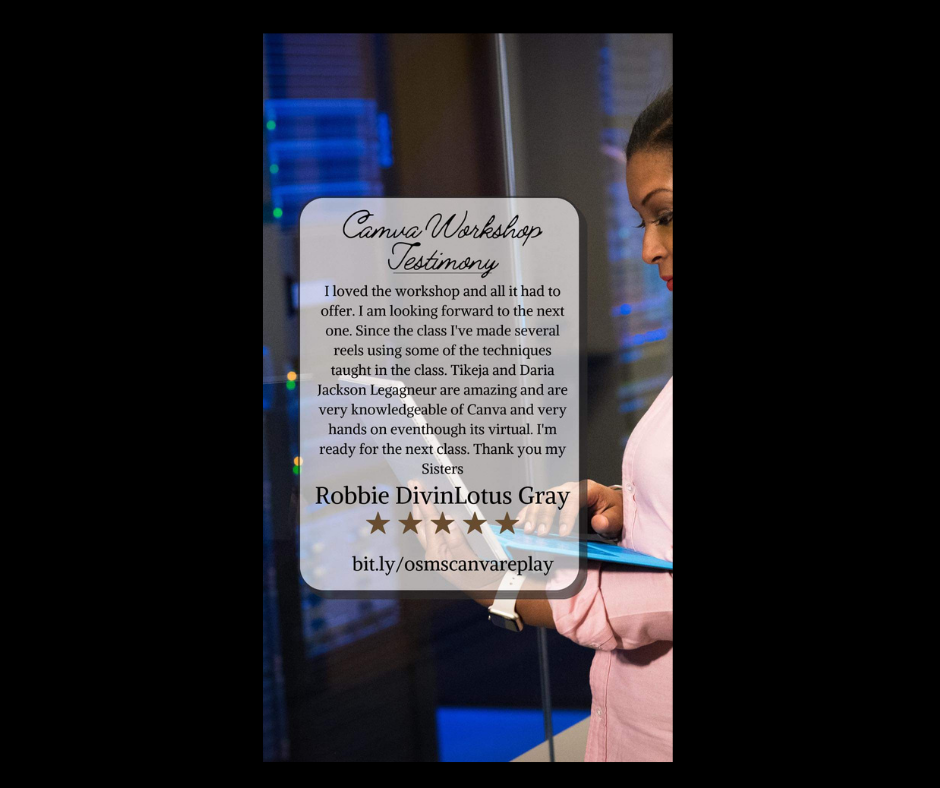 Canva Workshop
Testimony
I loved the workshop and all it had to
offer. I am looking forward to the next
one. Since the class I've made several
reels using some of the techniques
taught in the class. Tikeja and Daria
Jackson Legagneur are amazing and are
very knowledgeable of Canva and very
hands on eventhough its virtual. I'm
ready for the next class. Thank you my
Sisters
Robbie DivinLotus Gray
bit.ly/osmscanvareplay